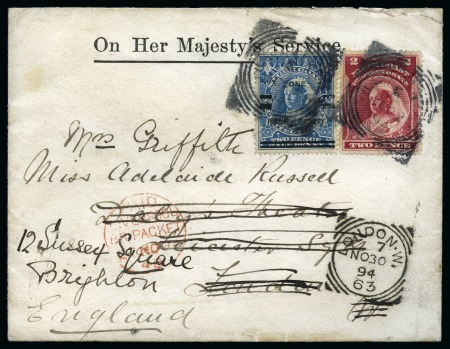 On Her Majesty's Service.
2 2
TWO PENCE
HALF PENNY
TWO PENCE
Mrs Griffith
Miss Adelaide Russell
Daly's Theatre
12 Sussex Square Leicester Sq
Brighton London
England W
PACKET
NO
LONDON.W.
7
NO30
94
63